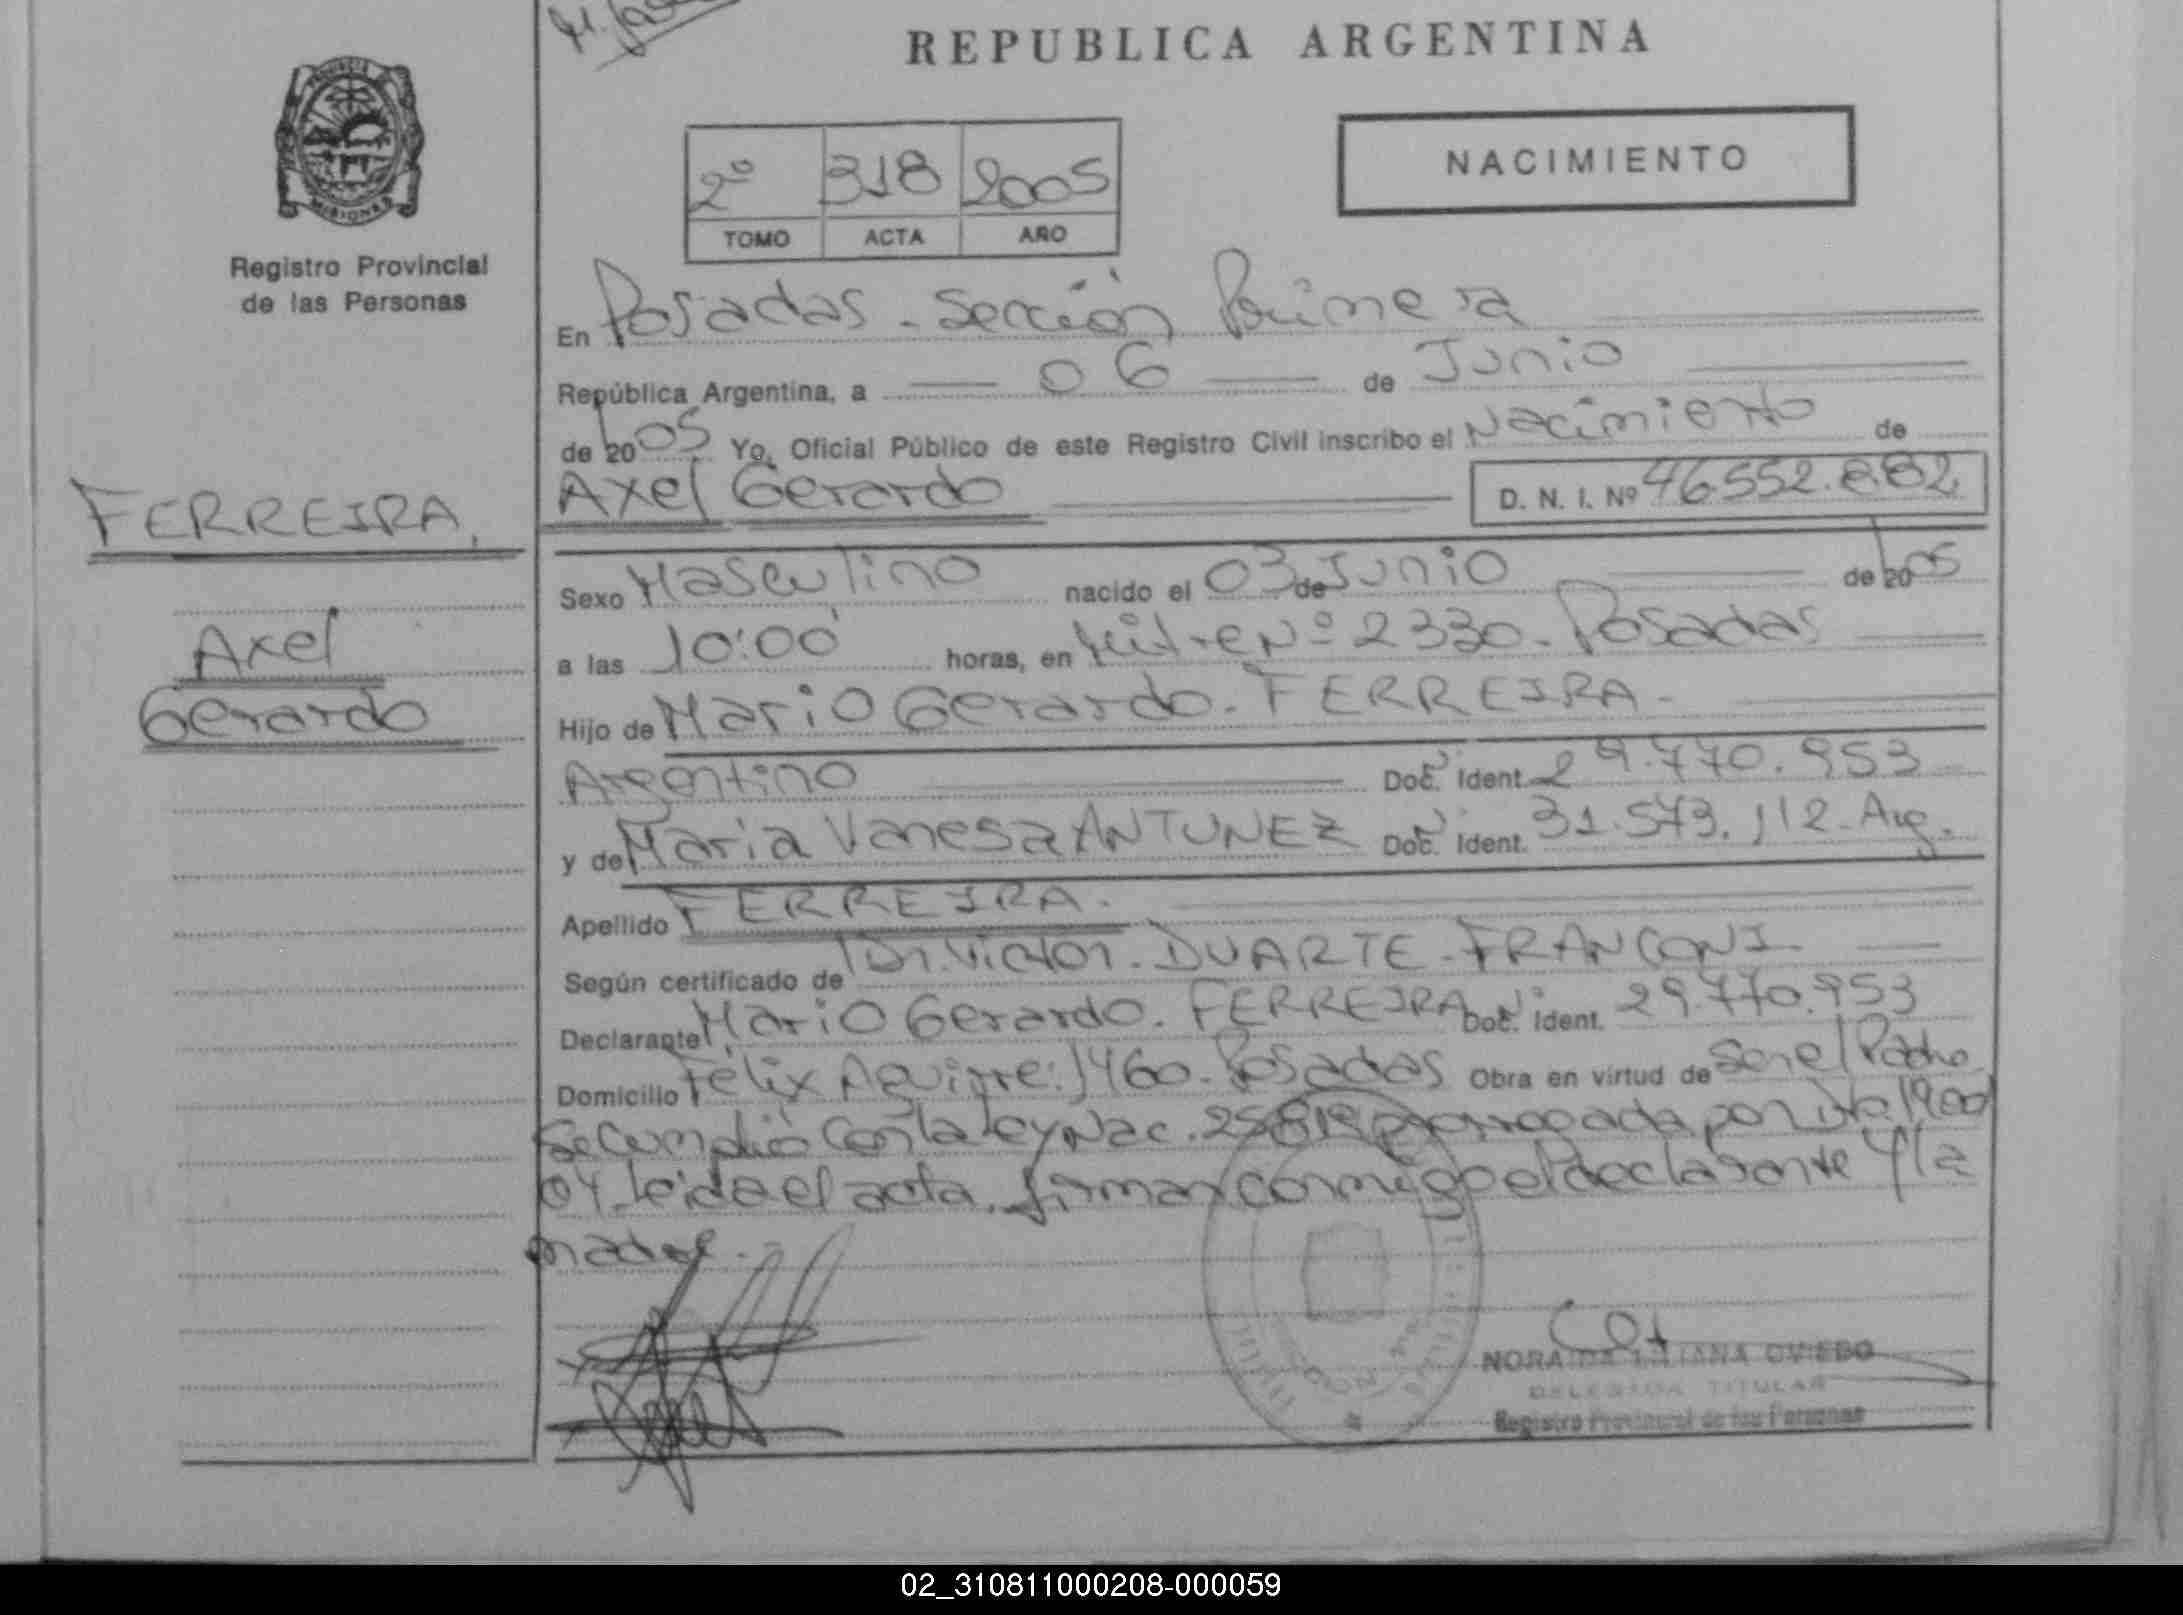 REPUBLICA ARGENTINA
PROVINCIA
MISIONES
Registro Provincial
de las Personas
2º 318 2005
TOMO ACTA AÑO
NACIMIENTO
En Posadas - Sección Primera
República Argentina, a 06 de Junio
de 2005 Yo, Oficial Público de este Registro Civil inscribo el Nacimiento de
Axel Gerardo D. N. I. Nº 46.552.882
FERREIRA,
Axel
Gerardo
Sexo Masculino nacido el 03 de Junio de 2005
a las 10:00 horas, en Mitre Nº 2330 - Posadas
Hijo de Mario Gerardo - FERREIRA -
Argentino Doc. Ident. 29.770.953
y de Maria Vanesa ANTUNEZ Doc. Ident. 31.573.112 - Arg.
Apellido FERREIRA.
Según certificado de Dr. Victor - DUARTE - FRANCONI
Declarante Mario Gerardo. FERREIRA Doc. Ident. 29.770.953
Domicilio Félix Aguirre: 1460 - Posadas Obra en virtud de Ser el Padre
Se cumplió con la ley Nac. prorrogada por
04 - leida el acta, firman conmigo el declarante y la
madre.
NORAIDA LILIANA OVIEDO
DELEGADA TITULAR
Registro Provincial de las Personas
02_310811000208-000059